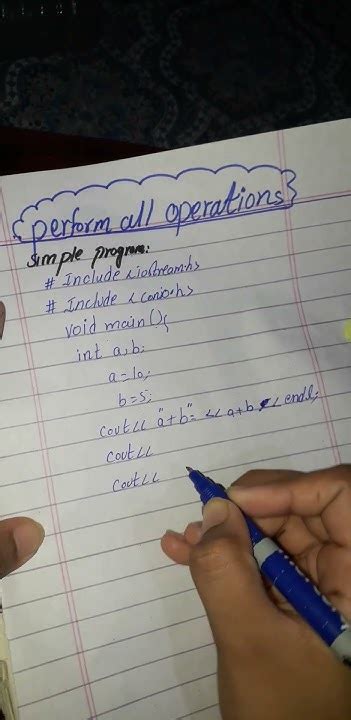 perform all operations
Simple program:
# Include <iostream.h>
# Include <conio.h>
void main(){
int a,b;
a=10;
b=5;
cout<< "a+b"= << a+b << endl;
cout<<
cout<<